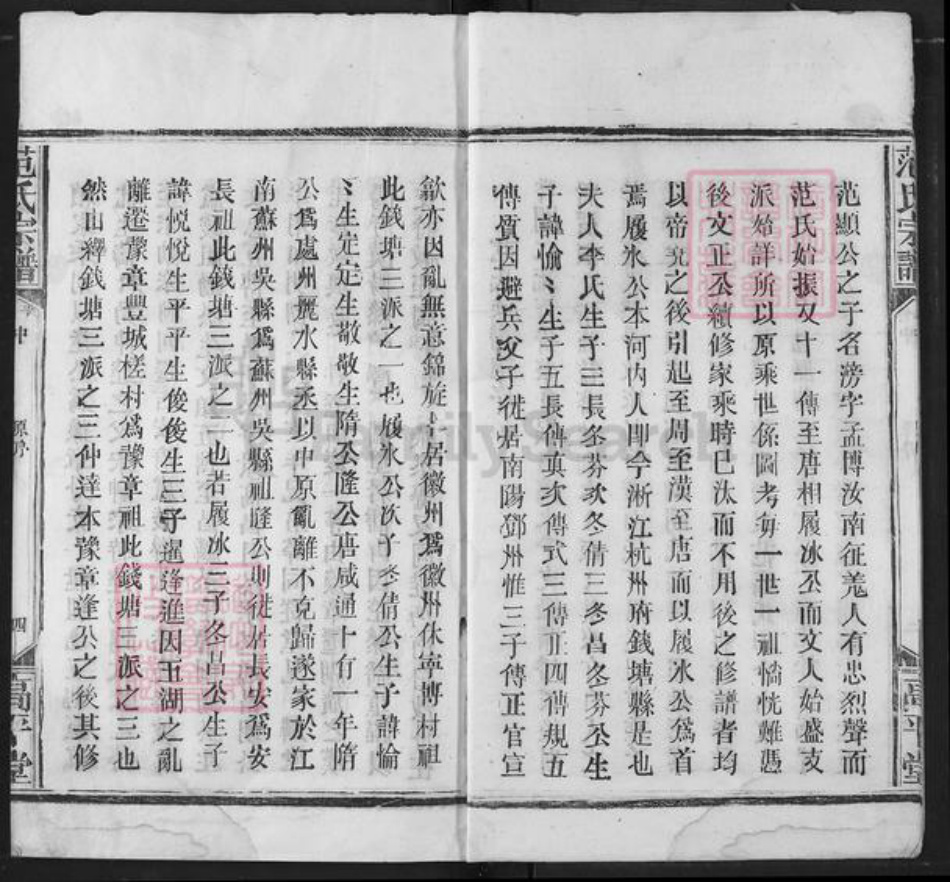 范顯公之子名滂字孟博汝南征羗人有忠烈聲而
范氏始振又十一傳至唐相履冰公而文人始盛支
派始詳所以原乘世係圖考每一世一祖惝恍難憑
後文正公續修家乘時已汰而不用後之修譜者均
以帝堯之後引起至周至漢至唐而以履冰公爲首
焉履氷公本河内人即今淅江杭州府錢塘縣是也
夫人李氏生子三長冬芬次冬倩三冬昌冬芬公生
子諱愉〻生子五長傳眞次傳式三傳正四傳規五
傳質因避兵父子徙居南陽鄧州惟三子傳正官宣
歙亦因亂無意錦旋卜居徽州爲徽州休寕博村祖
此錢塘三派之一也履氷公次子冬倩公生子諱愉
〻生定定生敬敬生隋公隆公唐咸通十有一年陏
公爲處州麗水縣丞以中原亂離不克歸遂家於江
南蘇州吳縣爲蘇州吳縣祖隆公則徙居長安爲安
長祖此錢塘三派之二也若履冰三子冬昌公生子
諱悅悅生平平生俊俊生三子暹逢進因五湖之亂
離遷豫章豐城槎村爲豫章祖此錢塘三派之三也
然山繹錢塘三派之三仲達本豫章逢公之後其修
范氏宗譜
原序
四
高平堂